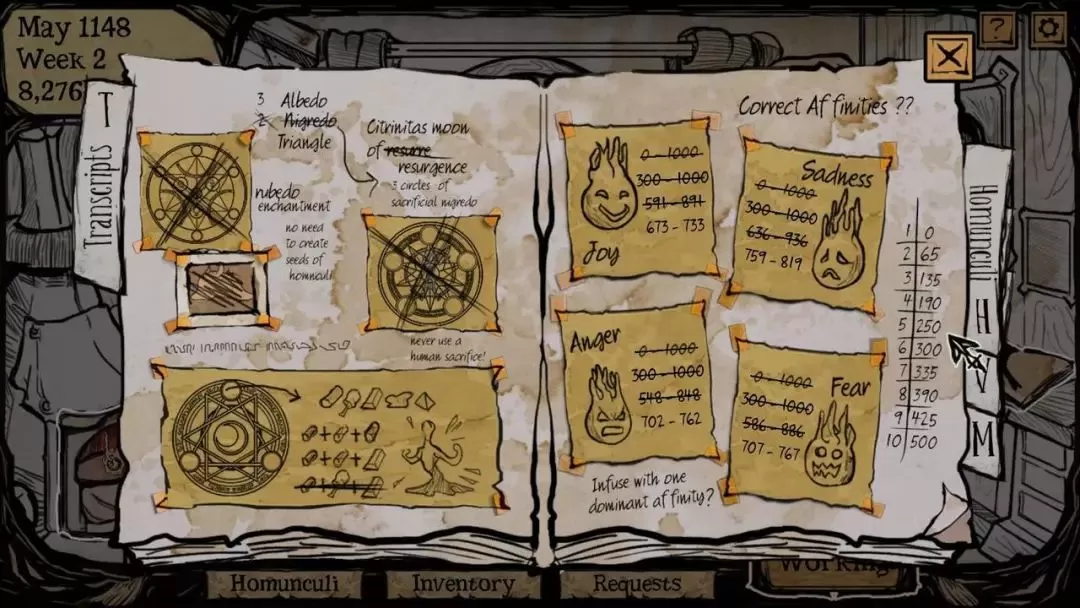 May 1148
Week 2
8,276
?
Transcripts T
3 Albedo
2 Nigredo
Triangle
Citrinitas moon
of resurre
resurgence
3 circles of
sacrificial nigredo
rubedo
enchantment
no need
to create
seeds of
homunculi
never use a
human sacrifice!
Correct Affinities ??
0 - 1000
300 - 1000
591 - 891
673 - 733
Joy
Sadness
0 - 1000
300 - 1000
636 - 936
759 - 819
Anger
0 - 1000
300 - 1000
548 - 848
702 - 762
Fear
0 - 1000
300 - 1000
586 - 886
707 - 767
Infuse with one
dominant affinity?
1 0
2 65
3 135
4 190
5 250
6 300
7 335
8 390
9 425
10 500
Homunculi H
M
Homunculi
Inventory
Requests
Working